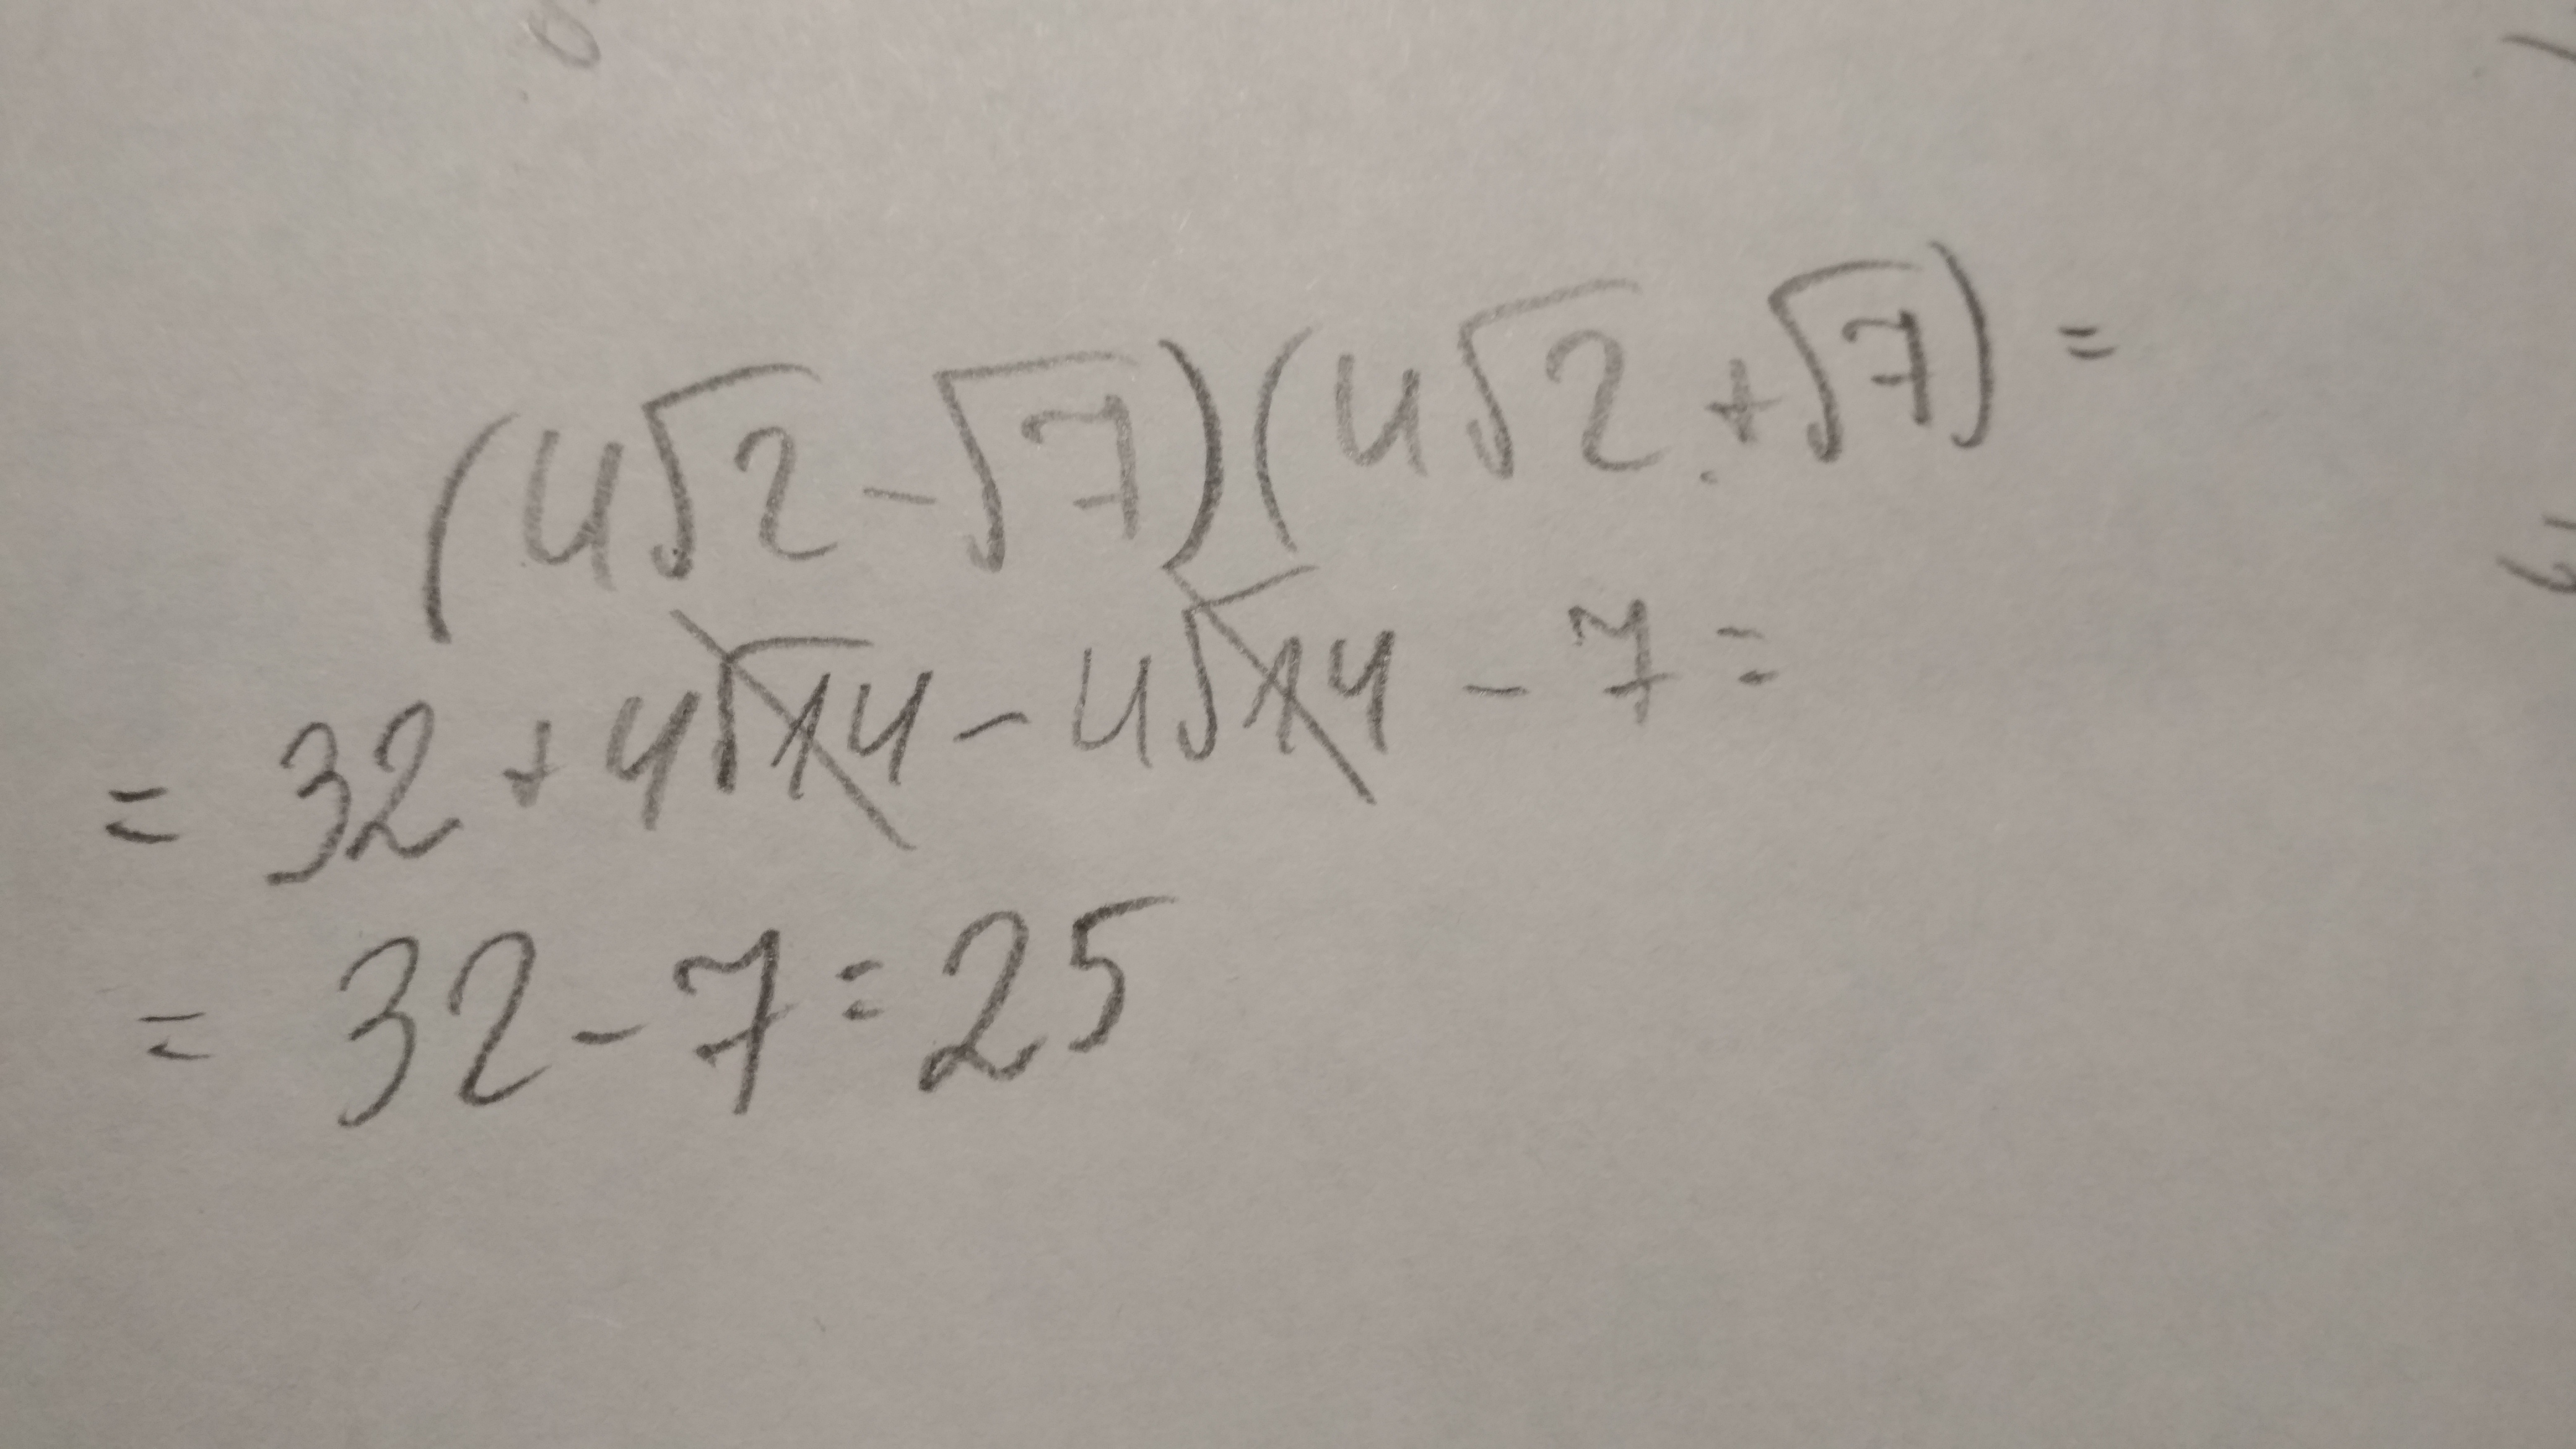 (4√2-√7)(4√2+√7)=
= 32 + 4√14 - 4√14 - 7 =
= 32 - 7 = 25